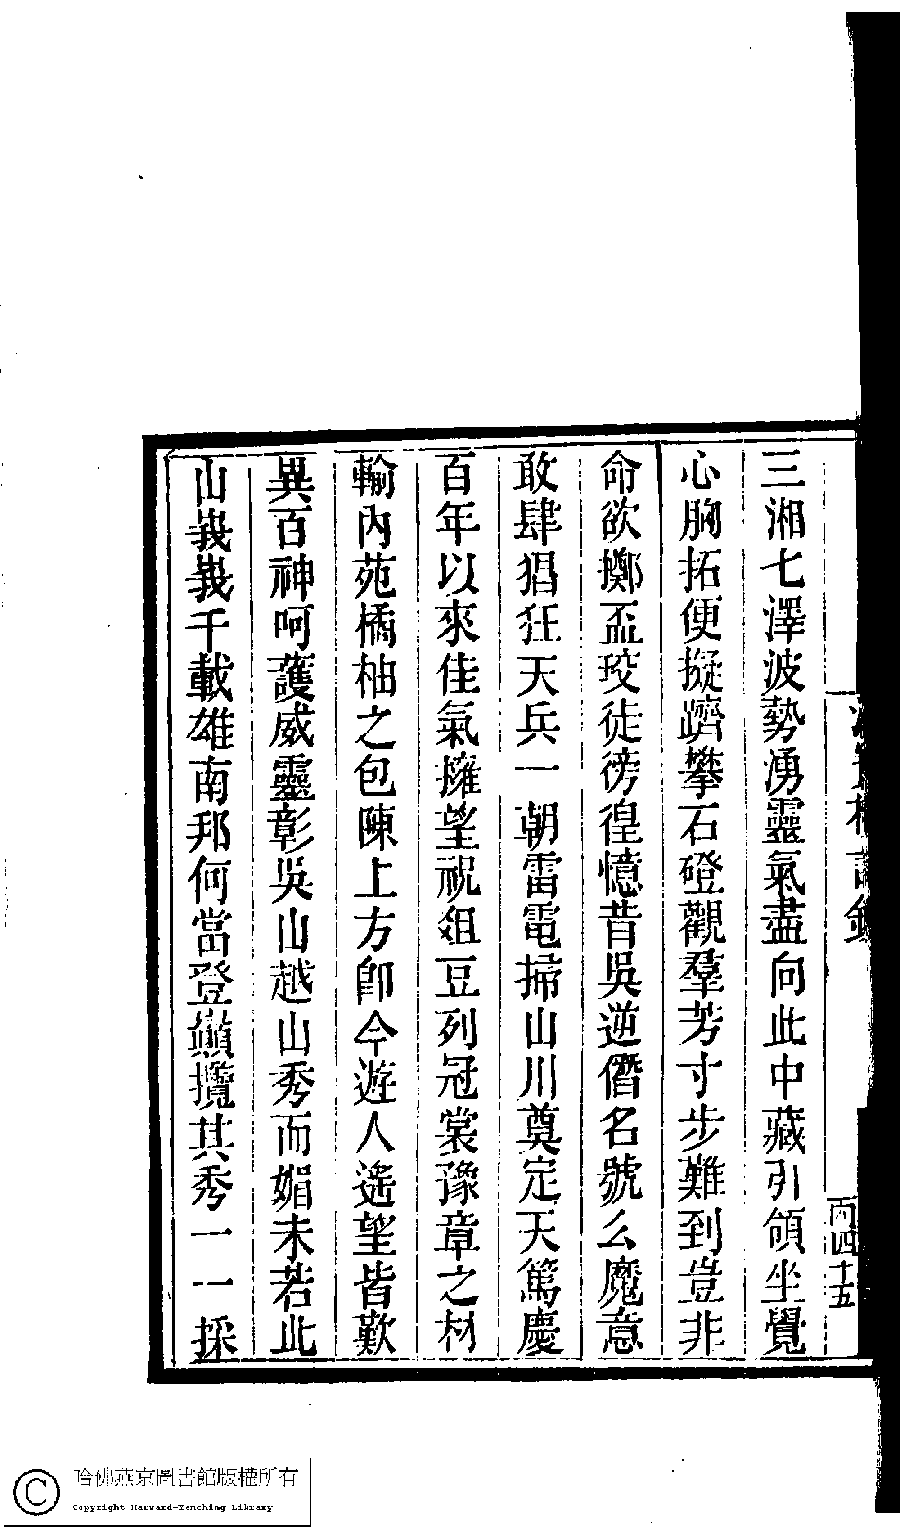 三湘七澤波勢湧靈氣盡向此中藏引領坐覺
心胸拓便擬躋攀石磴觀羣芳寸步難到豈非
命欲擲盃珓徒徬徨憶昔吳逆僭名號么魔意
敢肆猖狂天兵一朝雷電掃山川奠定天篤慶
百年以來佳氣擁望祝俎豆列冠裳豫章之材
輸內苑橘柚之包陳上方卽今遊人遙望皆歎
異百神呵護威靈彰吳山越山秀而媚未若此
山峩峩千載雄南邦何當登巓攬其秀一一採
丙四十五
哈佛燕京圖書館版權所有
Copyright Harvard-Yenching Library